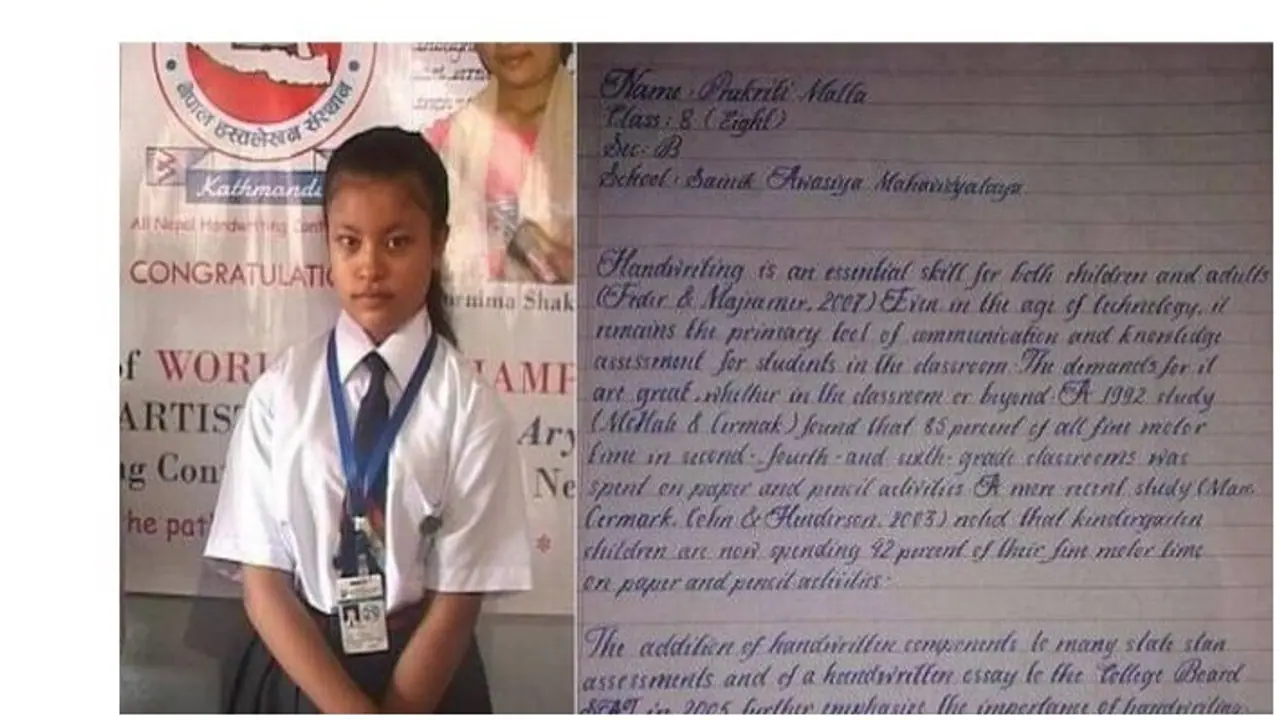 नेपाल हस्तलेखन संस्थान
Kathmandu
All Nepal Handwriting
CONGRATULATIO
Shak
of WOR
AMP
ARTIS
Ary
ng Con
Ne
he pat
Name: Prakriti Malla
Class: 8 (Eight)
Sec: B
School: Sainik Awasiya Mahavidyalaya
Handwriting is an essential skill for both children and adults
(Feder & Majnemer, 2007) Even in the age of technology, it
remains the primary tool of communication and knowledge
assessment for students in the classroom. The demands for it
are great, whether in the classroom or beyond. A 1992 study
(McHale & Cermak) found that 85 percent of all fine motor
time in second-, fourth- and sixth-grade classrooms was
spent on paper and pencil activities. A more recent study (Marr,
Cermark, Cohn & Henderson, 2003) noted that kindergarten
children are now spending 42 percent of their fine motor time
on paper and pencil activities.
The addition of handwritten components to many state stan
assessments and of a handwritten essay to the College Board
SAT in 2005 further emphasize the importance of handwriting.